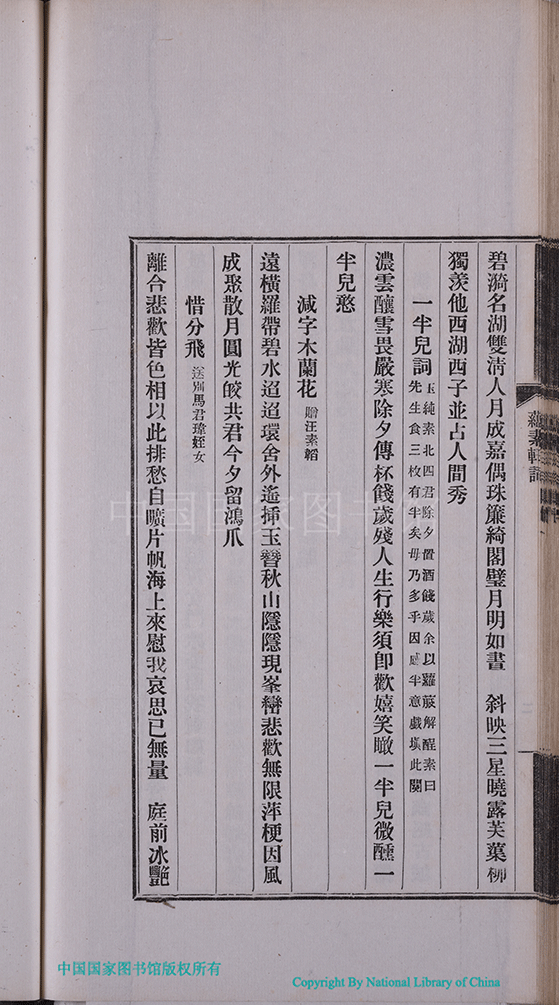 碧漪名湖雙淸人月成嘉偶珠簾綺閣璧月明如晝　斜映三星曉露芙蕖柳
獨羨他西湖西子並占人間秀
一半兒詞
玉純素北四君除夕置酒餞歲余以蘿菔解酲素曰
先生食三枚有半矣毋乃多乎因感半意戲塡此闋
濃雲釀雪畏嚴寒除夕傳杯餞歲殘人生行樂須卽歡嬉笑瞰一半兒微醺一
半兒憨
減字木蘭花 贈汪素韜
遠橫羅帶碧水迢迢環舍外遙揷玉簪秋山隱隱現峯巒悲歡無限萍梗因風
成聚散月圓光皎共君今夕留鴻爪
惜分飛 送別馬君瑋姪女
離合悲歡皆色相以此排愁自曠片帆海上來慰我哀思已無量　庭前冰艷
蘿素軒詞
中国国家图书馆
中国国家图书馆版权所有
Copyright By National Library of China